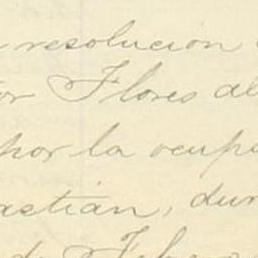 resolucion
or Flores al
por la ocupa
astián, dur
de Febre